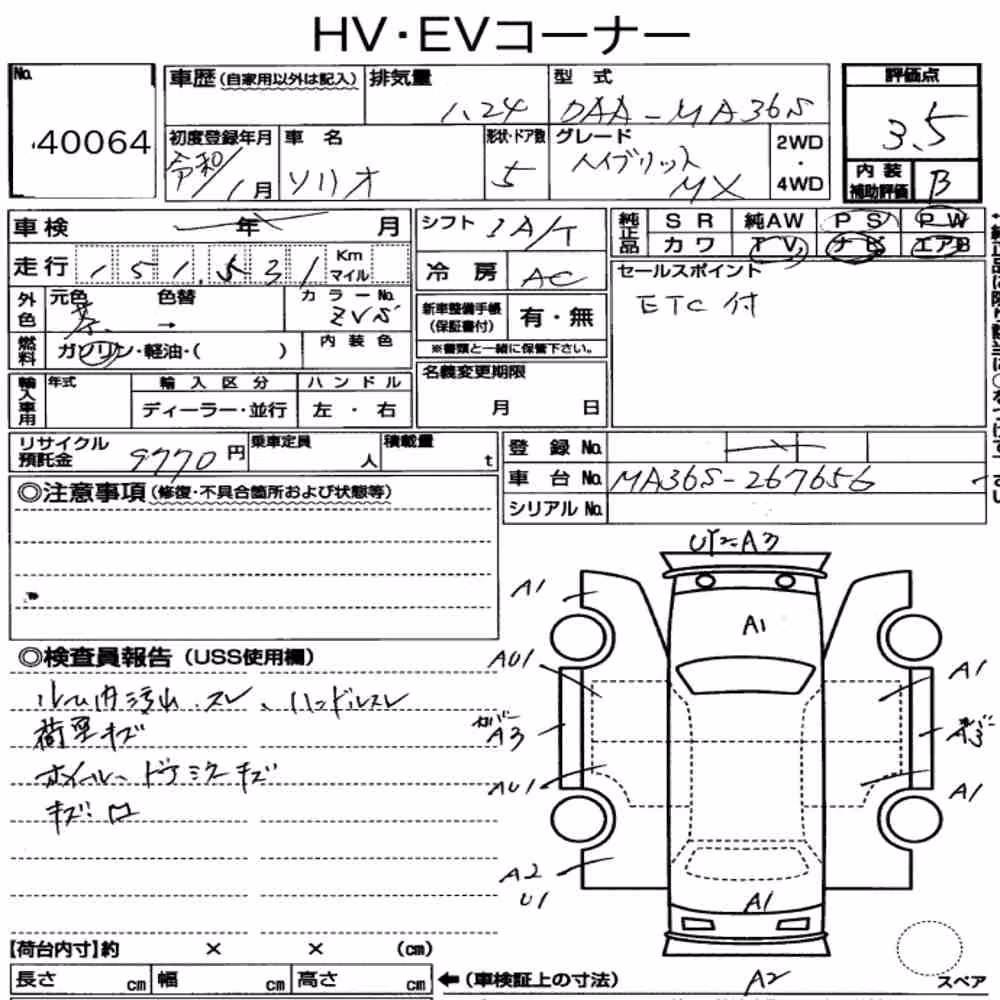 HV・EVコーナー
No.
40064
車歴 (自家用以外は記入)
排気量
1.24
型式
DAA-MA36S
評価点
3.5
初度登録年月
令和/1月
車名
ソリオ
形状・ドア数
5
グレード
ハイブリット
MX
2WD
・
4WD
内装
補助評価
B
車検 年 月
走行 151,531 Km マイル
外色
元色
茶
色替
→
カラーNo.
ZVS
燃料
ガソリン・軽油・( )
内装色
シフト
IA/T
冷房
AC
新車整備手帳
(保証書付)
有・無
※書類と一緒に保管下さい。
名義変更期限
月 日
純正品
SR 純AW PS PW
カワ TV ナビ エアB
セールスポイント
ETC付
輸入車用
年式
輸入区分
ディーラー・並行
ハンドル
左・右
リサイクル
預託金
9770円
乗車定員
人
積載量
t
登録No.
車台No.
MA36S-267656
シリアルNo.
◎注意事項 (修復・不具合箇所および状態等)
◎検査員報告 (USS使用欄)
ルーム内汚れ、スレ、ハンドルスレ
荷室キズ
ホイール、ドアミラーキズ
キズ・凹
A1
A1
AU1
A1
カバー
A3
カバー
A3
AU1
A1
A2
U1
A1
A2
スペア
[荷台内寸]約 × × (cm)
長さ cm 幅 cm 高さ cm
←(車検証上の寸法)